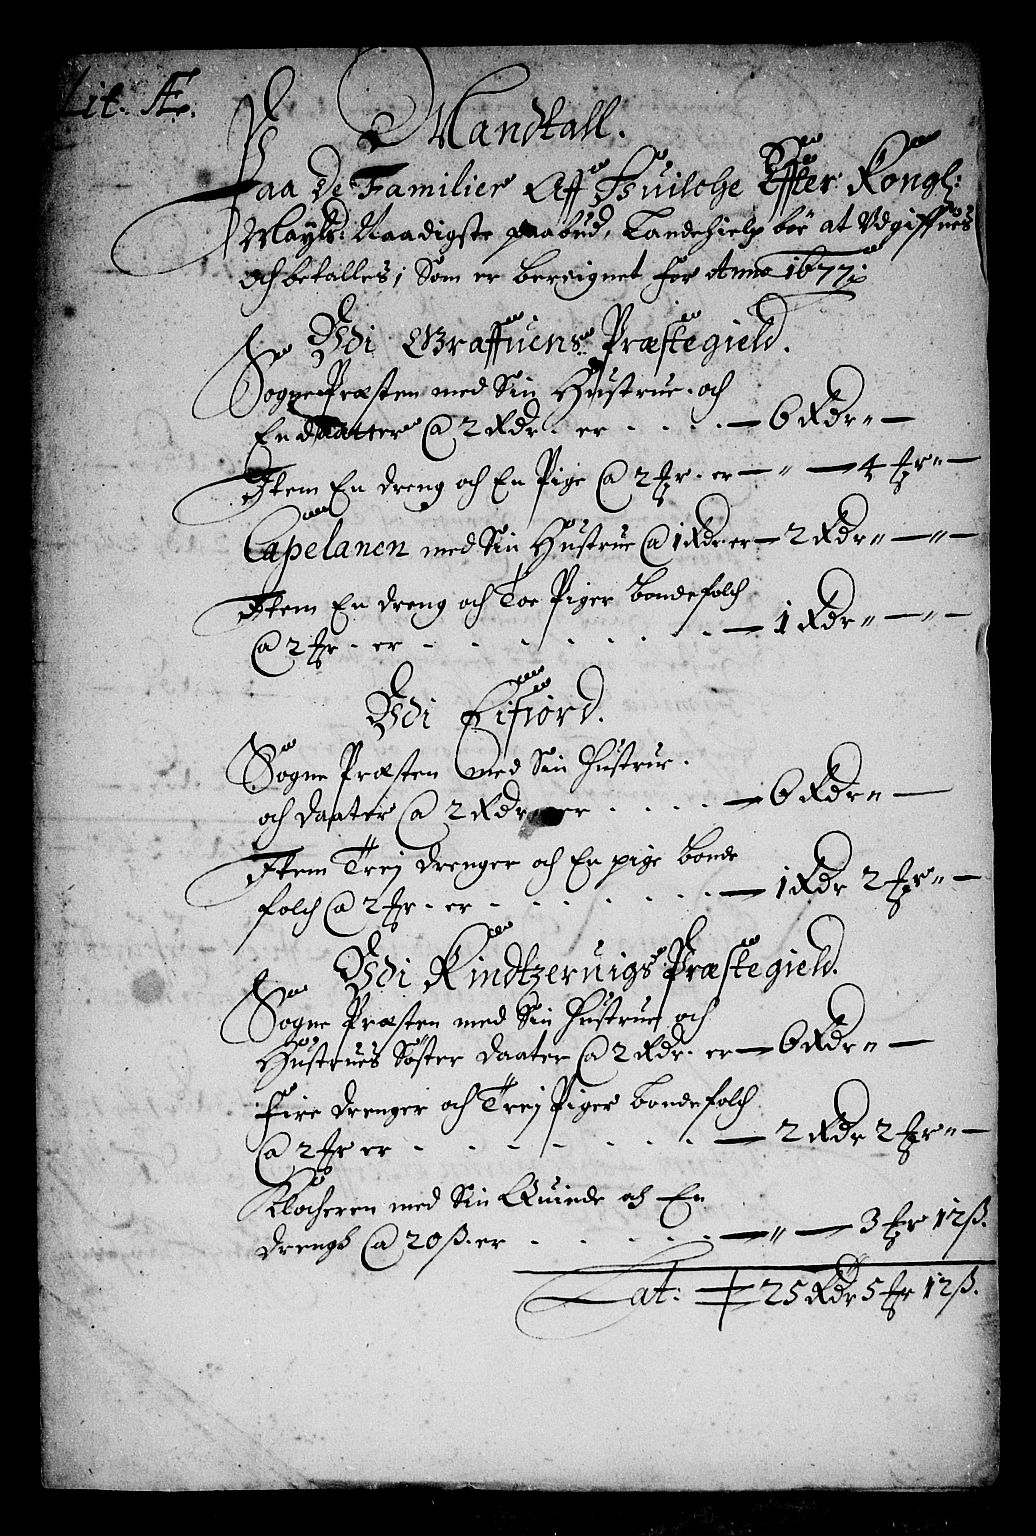 Lit. Æ.
Mandtall.
Paa De Familier Aff Huilche Effter Kongl:
Mayts: Naadigste paabud, Landehielp bør at Udgiffues
och betalles, Som er bereignet for Anno 1677:
Udi Graffuens Præstegield.
Sogne Præsten med Sin Hustrue och
En daatter @ 2 Rdr. er — 6 Rdr „ —
Item En dreng och En Pige @ 2 ʒr. er — „ — 4 ʒr „ —
Capelanen med Sin Hustrue @ 1 Rdr er — 2 Rdr „ — „ —
Item En dreng och Toe Piger bondefolch
@ 2 ʒr. er — 1 Rdr „ — „ —
Udi Eifiord.
Sogne Præsten med Sin Hustrue
och daater @ 2 Rdr er — 6 Rdr „ —
Item Trej drenger och En pige bonde
folch @ 2 ʒr. er — 1 Rdr 2 ʒr „ —
Udi Kindtzeruigs Præstegield.
Sogne Præsten med Sin Hustrue och
Hustrues Søster daater @ 2 Rdr. er — 6 Rdr „ —
Fire drenger och Trej Piger bondefolch
@ 2 ʒr er — 2 Rdr 2 ʒr „ —
Klocheren med Sin Quinde och En
drengh @ 20 ß. er — „ — 3 ʒr 12 ß.
Lat: 25 Rdr 5 ʒr 12 ß.